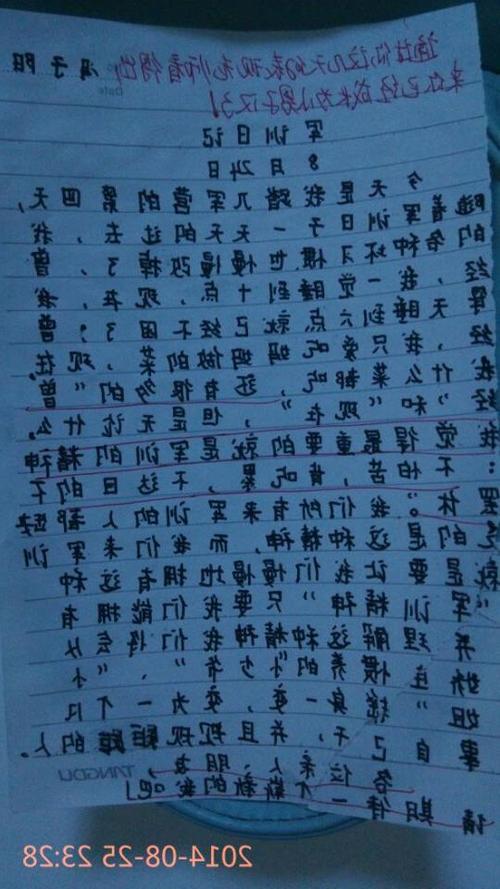 冯子阳
通过你这几天的表现老师看得出,
来你已经成长为小男子汉了!
Date
军训日记
8月24日
今天是我踏入军营的第四天,
随着军训日子一天天的过去,我
的各种坏习惯也慢慢改掉了,曾
经,我一觉睡到十点,现在,我
每天睡到六点就已经不困了;曾
经,我只爱吃妈妈做的菜,现在,
我什么菜都吃,还有很多的“曾
经”和“现在”,但是无论什么,
我觉得最重要的就是军训的精神
:不怕苦,肯吃累,不达目的不
罢休。我们所有来军训的人都缺
乏的是这种精神,而我们来军训
就是要让我们慢慢地拥有这种
“军训精神”只要我们能拥有
并理解这种精神我们将会从
娇生惯养的“少爷”、“小
姐”摇身一变,变为一个只
靠自己干,并且现现的人。
各位亲人、朋友,
请期待一个崭新的我吧!
TANGDU
2014-08-25 23:28